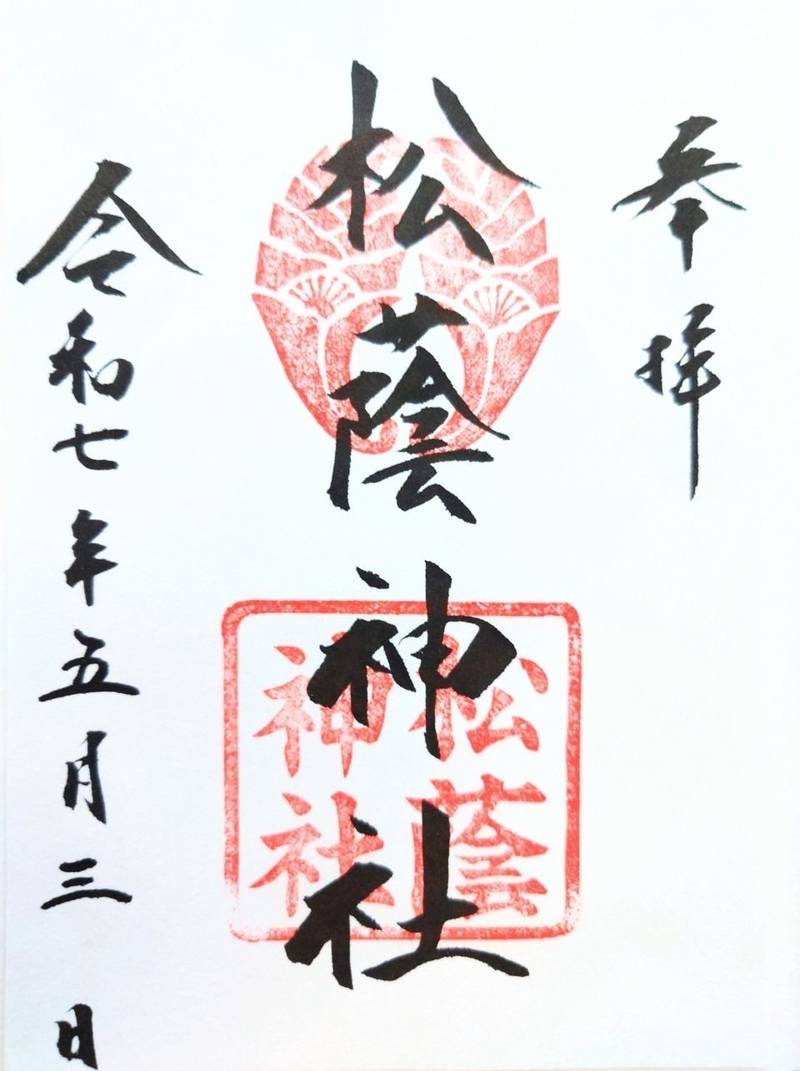 奉拝
松蔭神社
松蔭
神社
令和七年五月三日